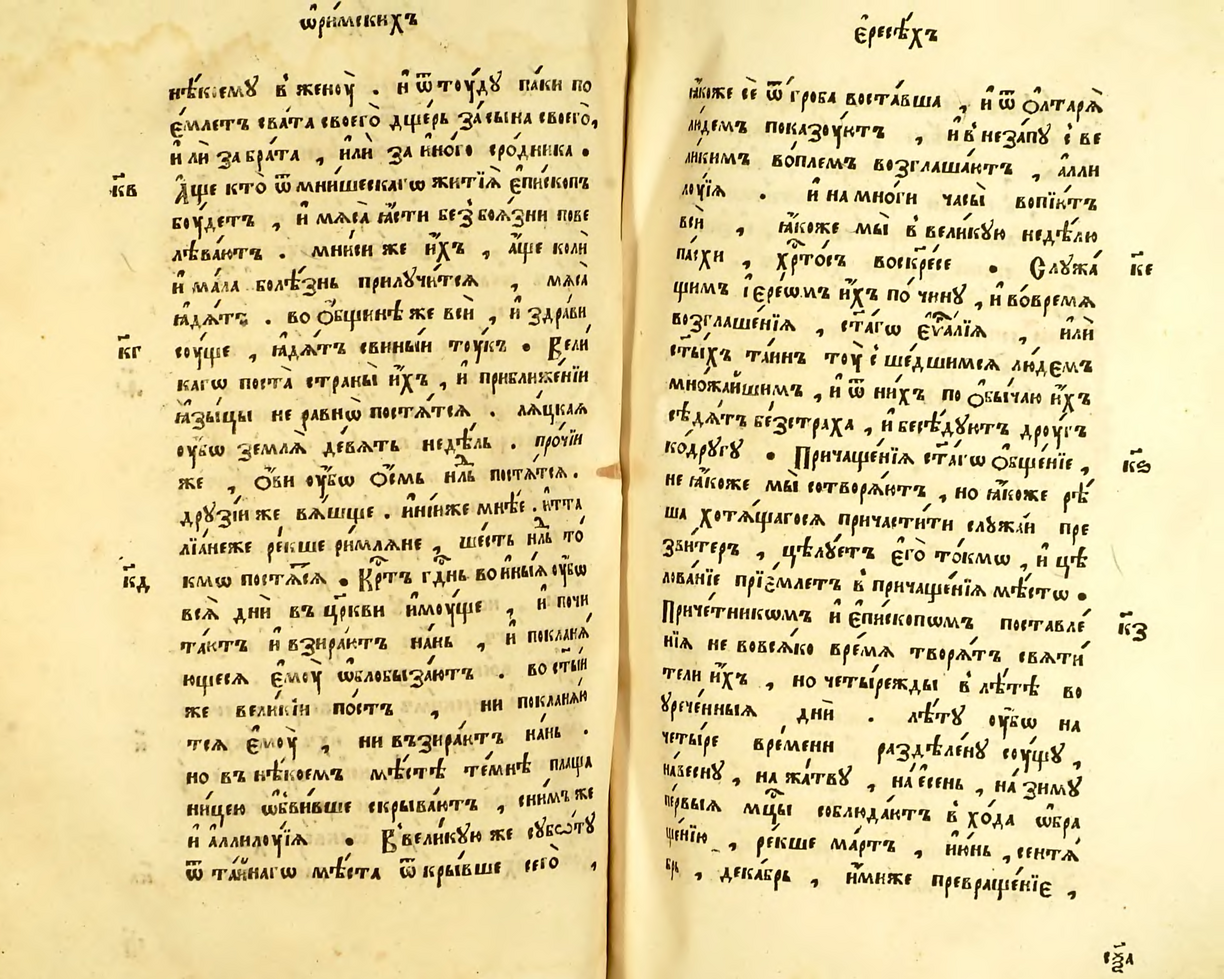 ѡ҆ри́мскихъ
нѣ́коемꙋ в̾ женоу̀ . и҆ ѿтоу́дꙋ па́ки по
е҆́млетъ сва́та своего̀ дще́рь за́ сына своего̀,
и҆ лѝ за бра́та , и҆лѝ за и҆но́го сро́дника .
к҃в
А҆́ще кто̀ ѿ мни́шескагѡ житїѧ̀ е҆пи́скопъ
боу́детъ , и҆ мѧса̀ ꙗ҆́сти без̾ боѧ́зни пове
лѣва́ютъ . мни́си же и҆́хъ , а҆́ще колѝ
и҆ ма́ла болѣ́знь прилꙋчи́тсѧ , мѧса̀
ꙗ҆дѧ́тъ . во о҆́бщинѣ же всѝ , и҆ здра́ви
к҃г
соу́ще , ꙗ҆дѧ́тъ свины́и тоу́къ . Вели
кагѡ поста̀ страны̀ и҆́хъ , и҆ приближе́нїи
ꙗ҆зы́цы не равнѡ̀ постѧ́тсѧ . лѧ́цкаѧ
оу҆́бѡ землѧ̀ де́вѧть недѣ́ль . про́чїи
же , о҆́ви оу҆́бѡ о҆́смь нл҃ь постѧ́тсѧ .
дрꙋзі́и же вѧ́щше . и҆ні́иже мнѣ́е . и҆тта
лїа́неже ре́кше ри́млѧне , ше́сть нл҃ь то́
к҃д
кмѡ постѧ́сѧ . Кр҃тъ гд҃нь во и҆ны́ѧ оу҆́бѡ
всѧ̀ дни̑ въ цр҃кви и҆моу́ще , и҆ почи
та́ютъ и҆ взира́ютъ на́нь , и҆ покланѧ́
ющесѧ є҆моу̀ ѡ҆блобыза́ютъ . во ст҃ы́и
же вели́кїи по́стъ , ни покланѧ́ю
тсѧ є҆моу̀ , ни възира́ютъ на́нь .
но въ нѣ́коемъ мѣ́стѣ те́мнѣ плаща
ни́цею ѡ҆бви́вше скрыва́ютъ , сни́мъ же
и҆ а҆ллилоу́їѧ . В̾вели́кꙋю же сꙋббѡ́тꙋ
ѿ та́йнагѡ мѣ́ста ѿкры́вше сего̀ ,
є҆ресѣ́хъ
ꙗ҆́коже сѐ ѿ гро́ба воста́вша , и҆ ѿ о҆лтарѧ̀
лю́демъ показоу́ютъ , и҆ в̾неза́пꙋ с̾ ве
ли́кимъ во́племъ возглаша́ютъ , а҆лли
лоу́їѧ . и҆ на мно́ги часы̀ вопїю́тъ
всѝ , ꙗ҆́коже мы̀ в̾ вели́кꙋю недѣ́лю
па́схи , хр҃то́съ воскр҃се . Слꙋжа́
к҃е
щимъ і҆ере́ѡмъ и҆́хъ по чи́нꙋ , и҆ во́времѧ
возглаше́нїѧ , ст҃а́гѡ є҆ѵ҃а́лїѧ , и҆лѝ
ст҃ы́хъ та́инъ тоу̀ с̾ше́дшимсѧ лю́демъ
мно́жайшимъ , и҆ ѿ ни́хъ по о҆бы́чаю и҆́хъ
сѣдѧ́тъ без̾стра́ха , и҆ бесѣ́дꙋютъ дроу́гъ
ко́дрꙋгꙋ . Причаще́нїѧ ст҃а́гѡ о҆бще́нїе ,
к҃ѕ
не ꙗ҆́коже мы̀ сотворѧ́ютъ , но ꙗ҆́коже рѣ́
ша хотѧ́щагосѧ причасти́ти слꙋжа́и пре
зви́теръ , цѣлꙋ́етъ є҆го̀ то́кмѡ , и҆ цѣ
лова́нїе прїе́млетъ в̾ причаще́нїѧ мѣ́стѡ .
Приче́тникѡмъ и҆ є҆пи́скопѡмъ поставле́
к҃з
нїѧ не вовсѧ́ко вре́мѧ творѧ́тъ свѧти́
тели и҆́хъ , но четы́режды в̾ лѣ́тѣ во
ᲂуре́чен́ныѧ дни̑ . лѣ́тꙋ оу҆́бѡ на
четы́ре вре́мени раздѣле́нꙋ соу́щꙋ ,
на́весну , на жа́твꙋ , на́ есень , на́ зимꙋ
пе́рвыѧ мц҃ы соблюда́ютъ в̾хо́да ѡ҆бра
ще́нїю , ре́кше ма́ртъ , и҆ю́нь , сентѧ́
брь , дека́брь , и҆́миже превраще́нїе ,
сѯ҃а